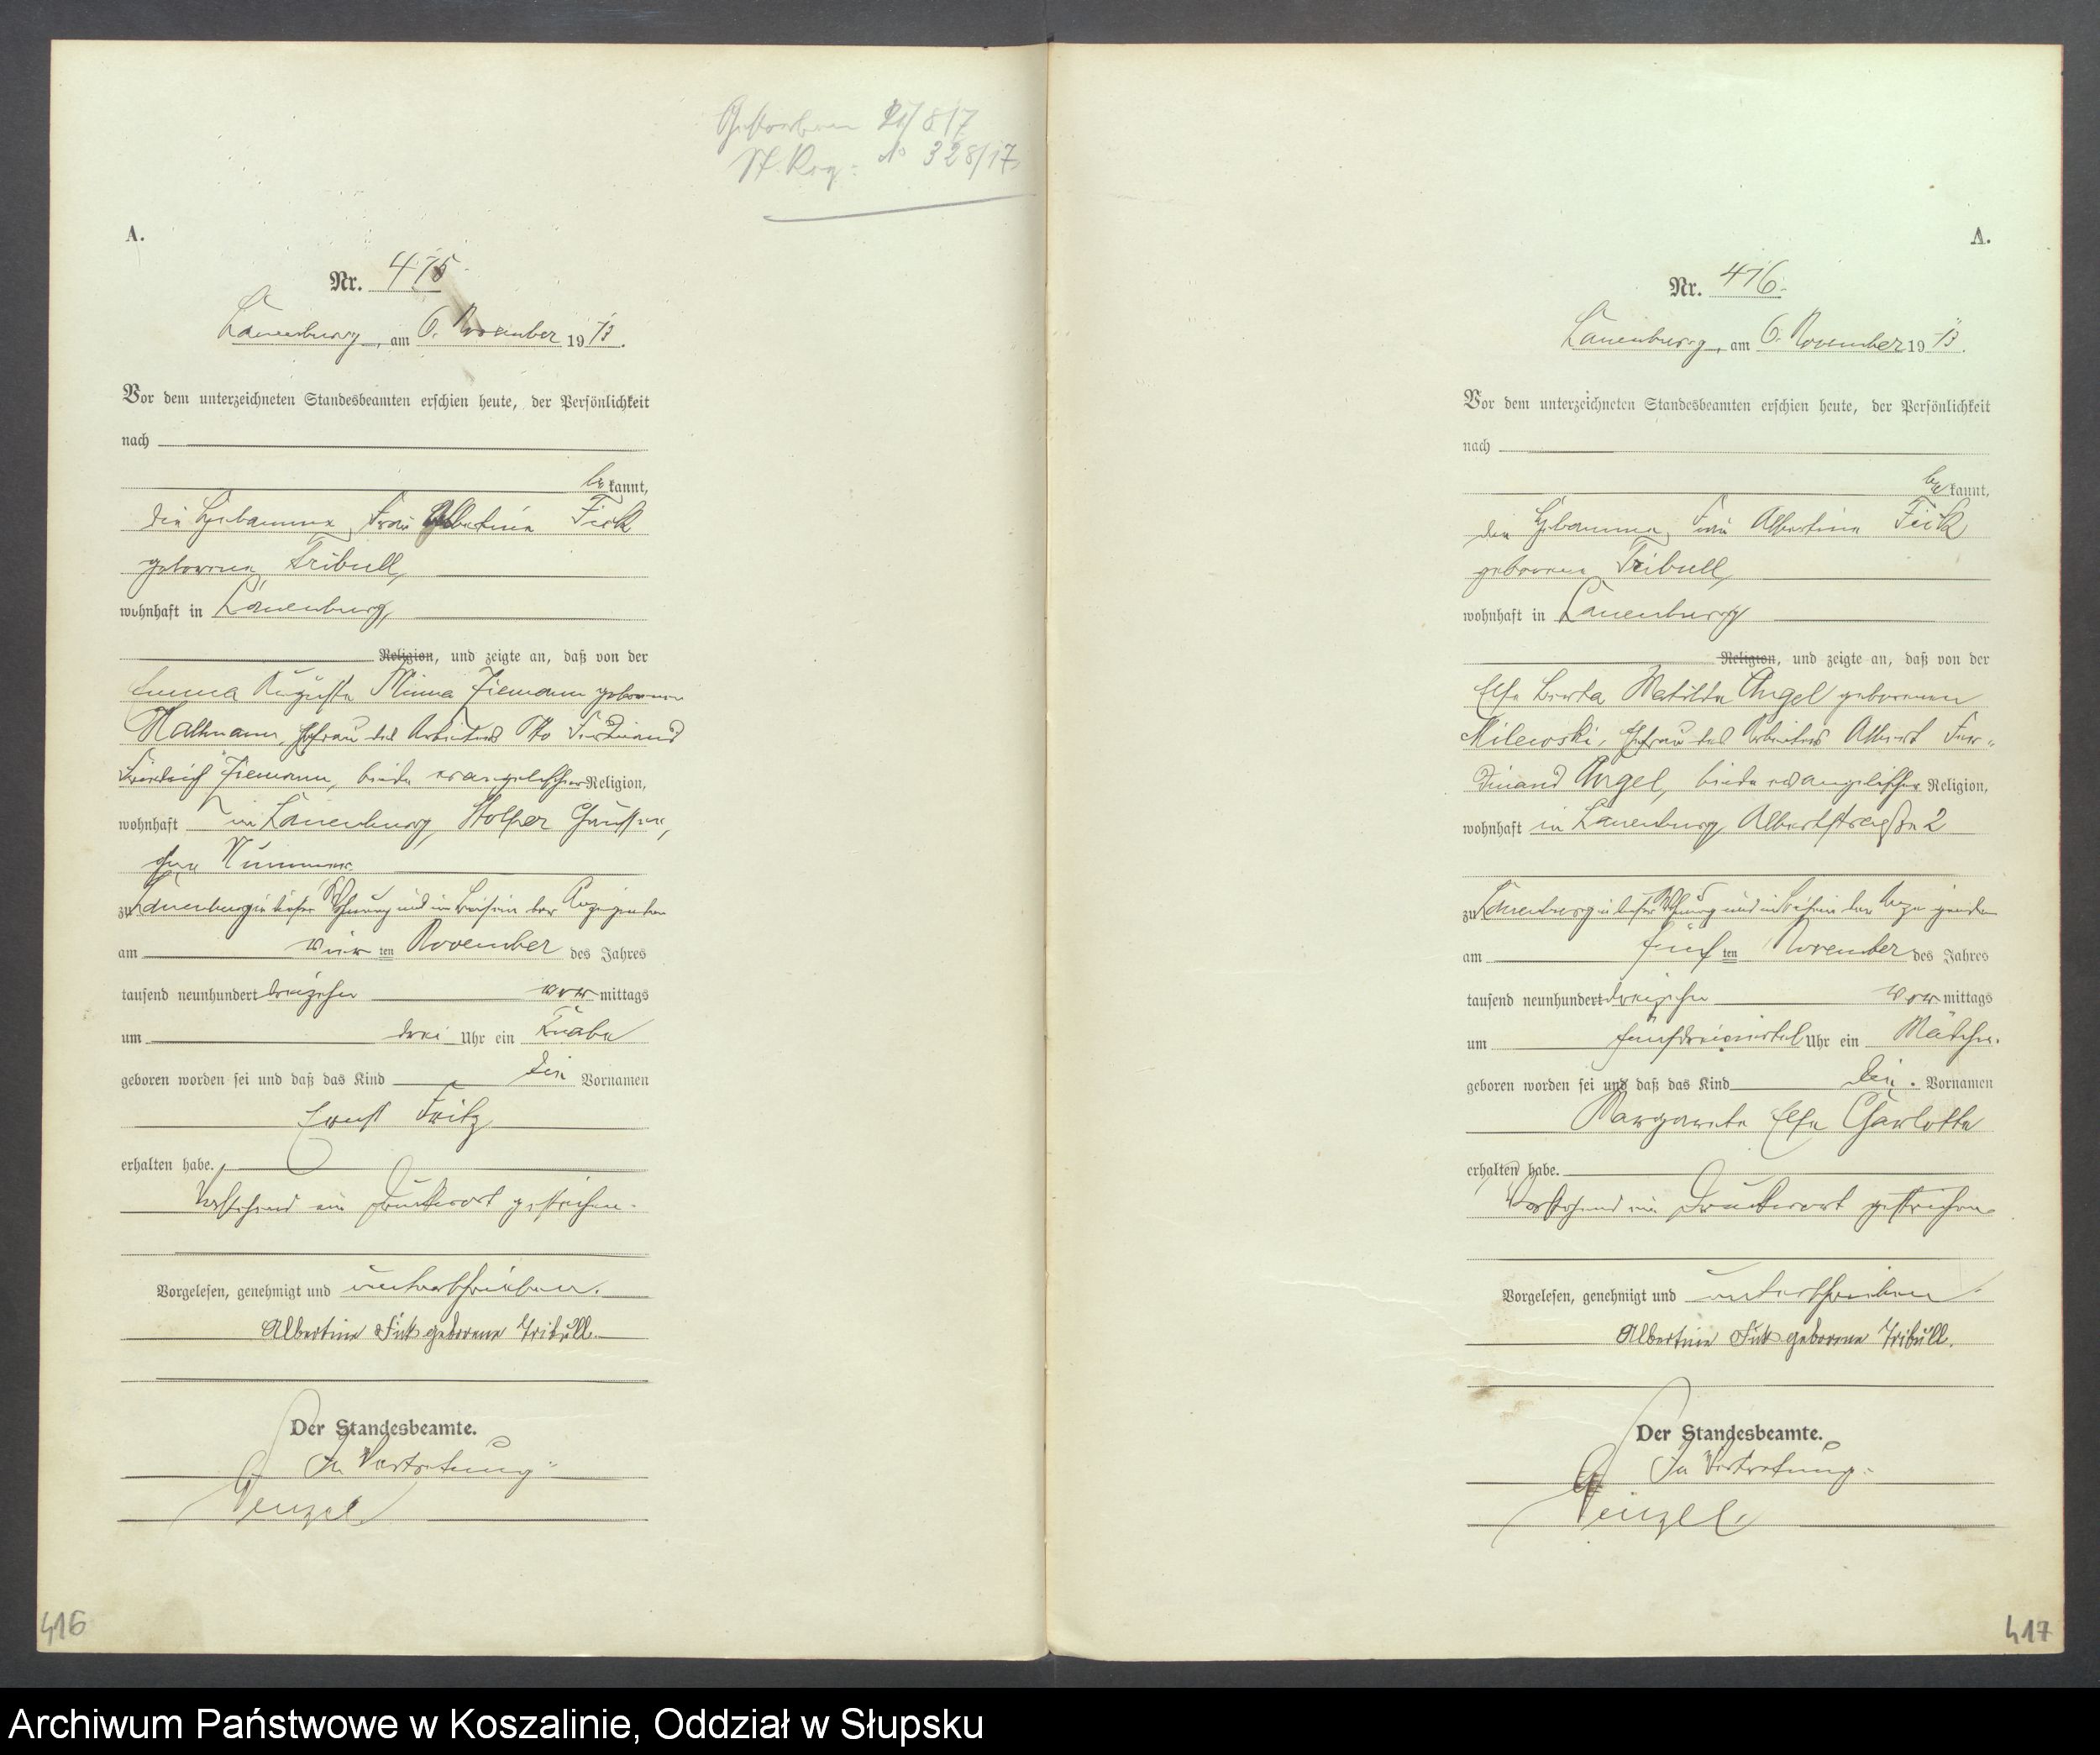 Gestorben 21/8/17
St. Reg: No 328/17
A.
Nr. 475
Lauenburg, am 6. November 1913.
Vor dem unterzeichneten Standesbeamten erschien heute, der Persönlichkeit
nach
bekannt,
die Hebamme Frau Albertine Fick
geborene Tribull,
wohnhaft in Lauenburg,
Religion, und zeigte an, daß von der
Emma Auguste Minna Ziemann geborenen
Ehefrau des Arbeiters Otto Ferdinand
Friedrich Ziemann, beide evangelischer Religion,
wohnhaft in Lauenburg, Stolper Chaussee,
ohne Nummer
zu Lauenburg in dieser Wohnung und im Beisein der Anzeigenden
am vierten November des Jahres
tausend neunhundert dreizehn vormittags
um drei Uhr ein Knabe
geboren worden sei und daß das Kind die Vornamen
Ernst Fritz
erhalten habe.
Vorstehend ein Druckwort gestrichen.
Vorgelesen, genehmigt und unterschrieben.
Albertine Fick geborene Tribull.
Der Standesbeamte.
In Vertretung:
Wenzel
416
A.
Nr. 476.
Lauenburg, am 6. November 1913.
Vor dem unterzeichneten Standesbeamten erschien heute, der Persönlichkeit
nach
bekannt,
die Hebamme Frau Albertine Fick
geborene Tribull,
wohnhaft in Lauenburg
Religion, und zeigte an, daß von der
Else Berta Matilde Angel geborenen
Milewski, Ehefrau des Arbeiters Albert Fer-
dinand Angel, beide evangelischer Religion,
wohnhaft in Lauenburg, Albertstraße 2
zu Lauenburg in dieser Wohnung und im Beisein der Anzeigenden
am fünften November des Jahres
tausend neunhundert dreizehn vormittags
um fünfdreiviertel Uhr ein Mädchen
geboren worden sei und daß das Kind die Vornamen
Margarete Else Charlotte
erhalten habe.
Vorstehend ein Druckwort gestrichen
Vorgelesen, genehmigt und unterschrieben
Albertine Fick geborene Tribull.
Der Standesbeamte.
In Vertretung:
Wenzel
417
Archiwum Państwowe w Koszalinie, Oddział w Słupsku